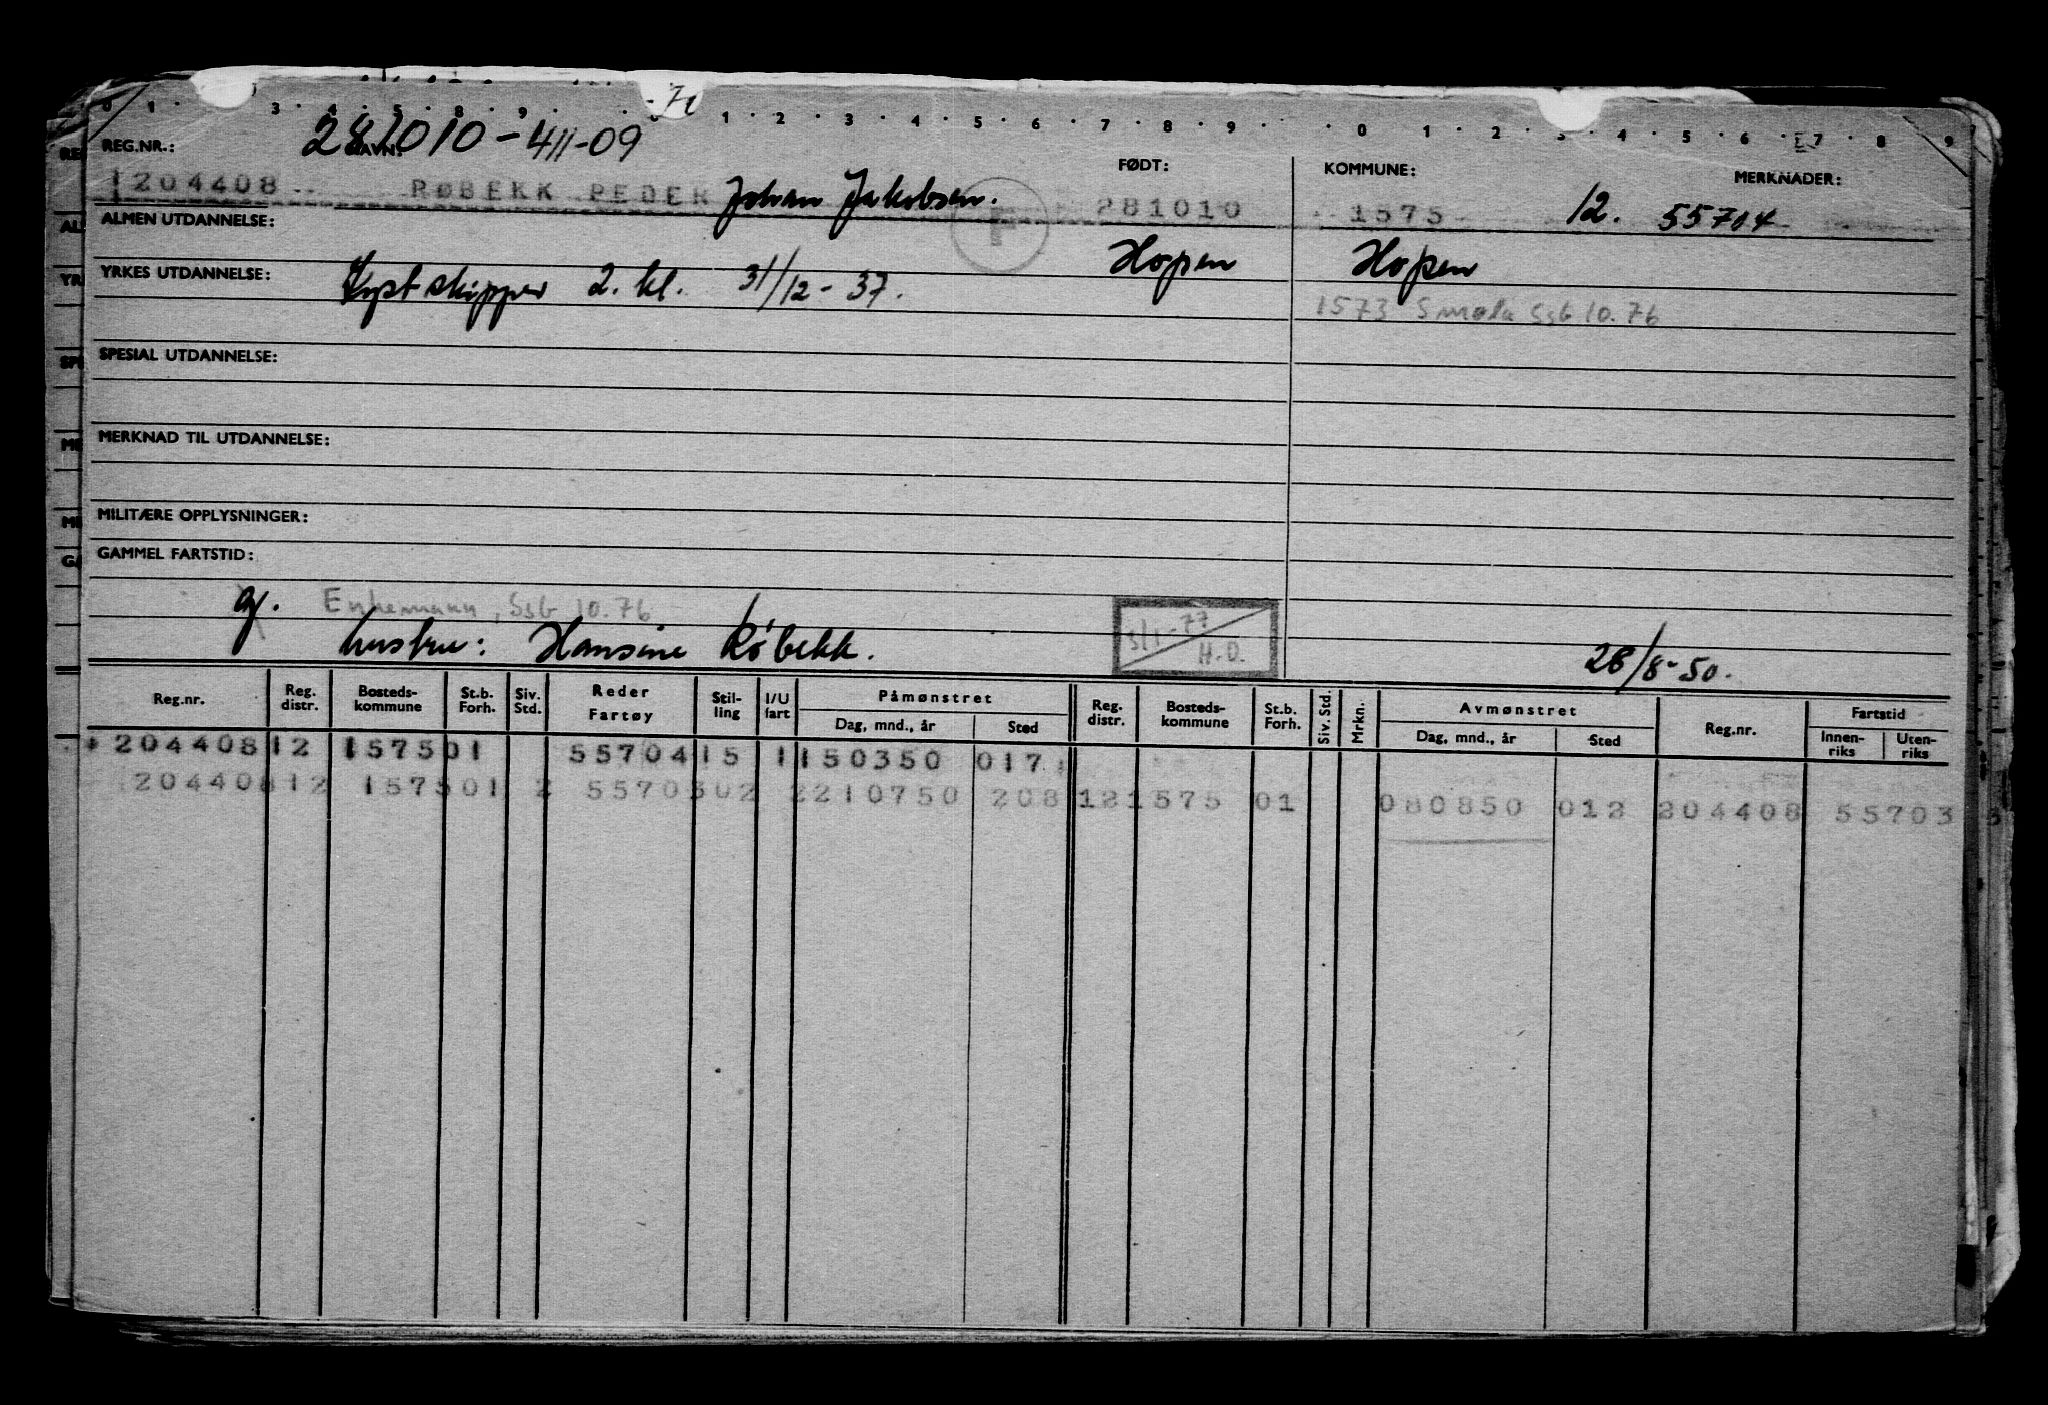 0 1 · 3 · 4 · 5 · 8 · 9 · · 0 1 · 2 · 3 · 4 · 5 · 6 · 7 · 8 · 9 · · 0 1 · 2 · 3 · 4 · 5 · 6 · 7 · 8 · 9
REG.NR.: NAVN: 281010-411-09 FØDT: KOMMUNE: MERKNADER:
204408 RØBEKK PEDER Johan Jakobsen. F 281010 1575 12. 55704
ALMEN UTDANNELSE: Hopen Hopen
YRKES UTDANNELSE: Kystskipper 2. kl. 31/12-37.
1573 Smøla SsG 10.76
SPESIAL UTDANNELSE:
MERKNAD TIL UTDANNELSE:
MILITÆRE OPPLYSNINGER:
GAMMEL FARTSTID:
g. Enkemann, SsG 10.76
hustru: Hansine Røbekk. 3/1-77 H.O. 28/8-50.
Reg.nr. Reg. distr. Bosteds- kommune St.b. Forh. Siv. Std. Reder Fartøy Stil- ling I/U fart Påmønstret Dag, mnd., år Sted Reg. distr. Bosteds- kommune St.b. Forh. Siv. Std. Mrkn. Avmønstret Dag, mnd., år Sted Reg.nr. Fartstid Innen- riks Uten- riks
204408 12 1575 01 55704 15 1 150350 017
204408 12 1575 01 2 55703 02 2 210750 208 12 1575 01 080850 012 204408 55703